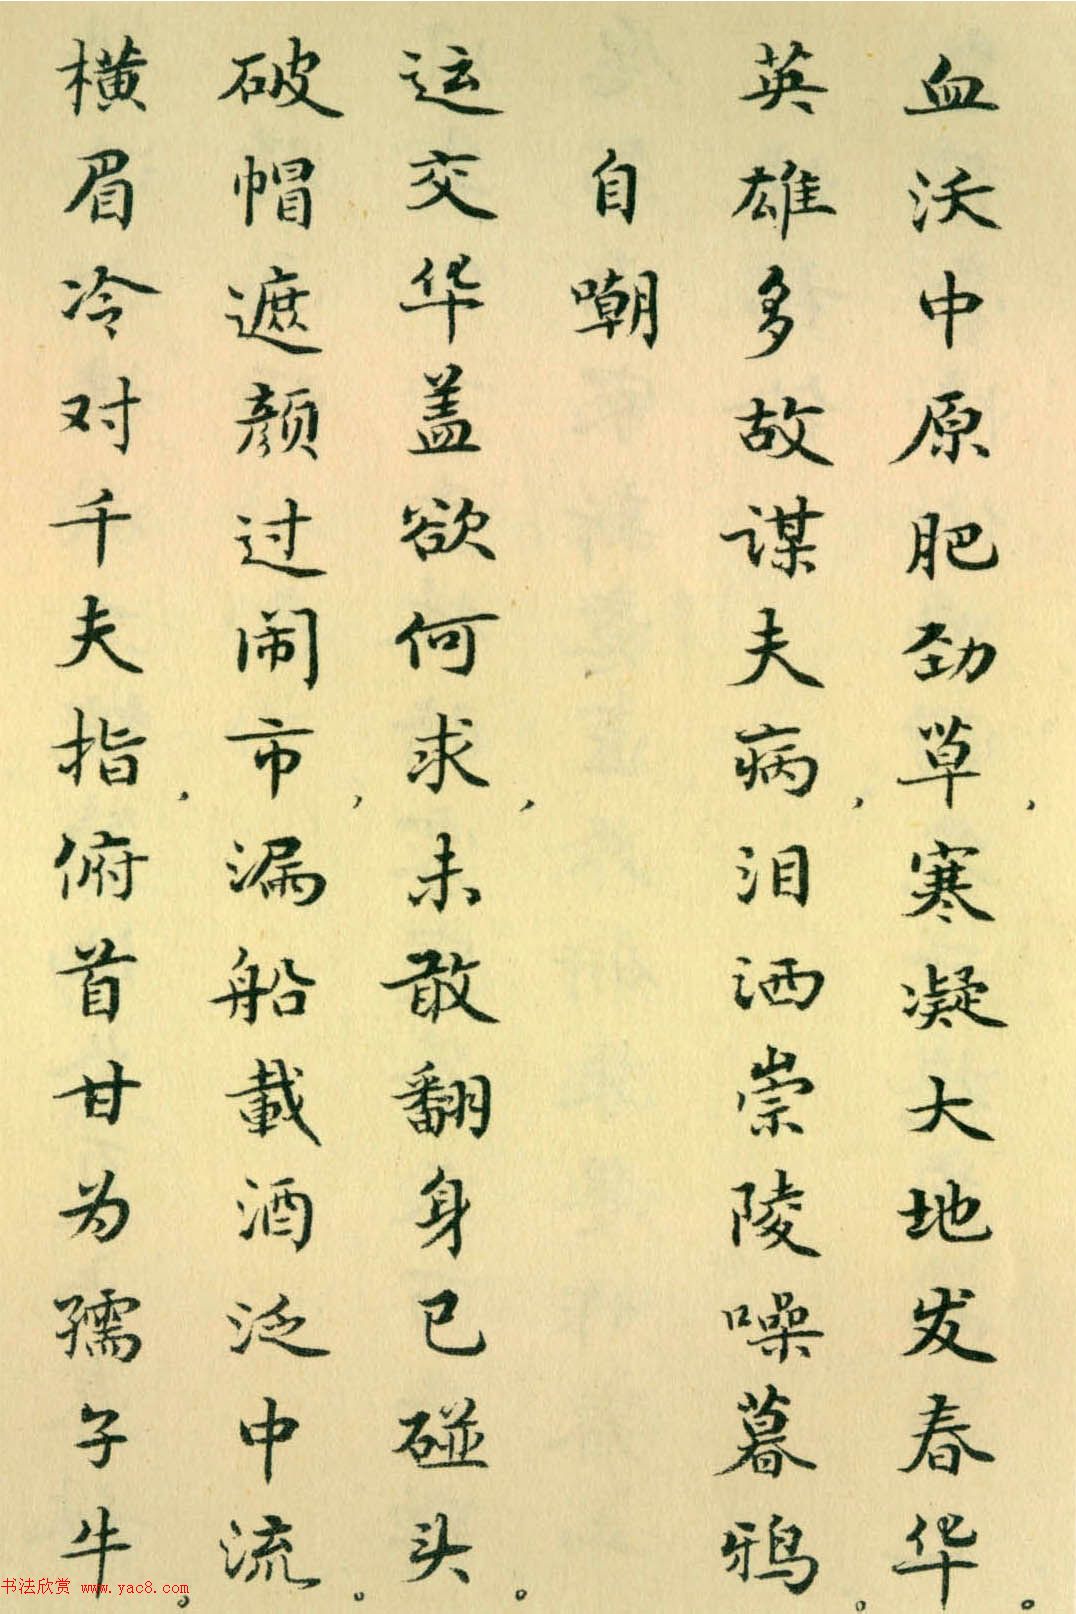 血沃中原肥劲草，寒凝大地发春华。
英雄多故谋夫病，泪洒崇陵噪暮鸦。
自嘲
运交华盖欲何求，未敢翻身已碰头。
破帽遮颜过闹市，漏船載酒泛中流。
横眉冷对千夫指，俯首甘为孺子牛。
书法欣赏 www.yac8.com